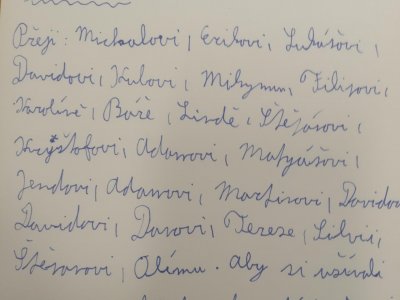 Přeji: Michalovi, Erikovi, Lukášovi,
Davidovi, Kubovi, Filipovi,
Karolíně, Báře, Lindě, Štěpánovi,
Kryštofovi, Adamovi, Matyášovi,
Jendovi, Adamovi, Martinovi, Davidov
Davidovi, Danovi, Tereze, Silvii,
Štěpánovi, aby si užívali